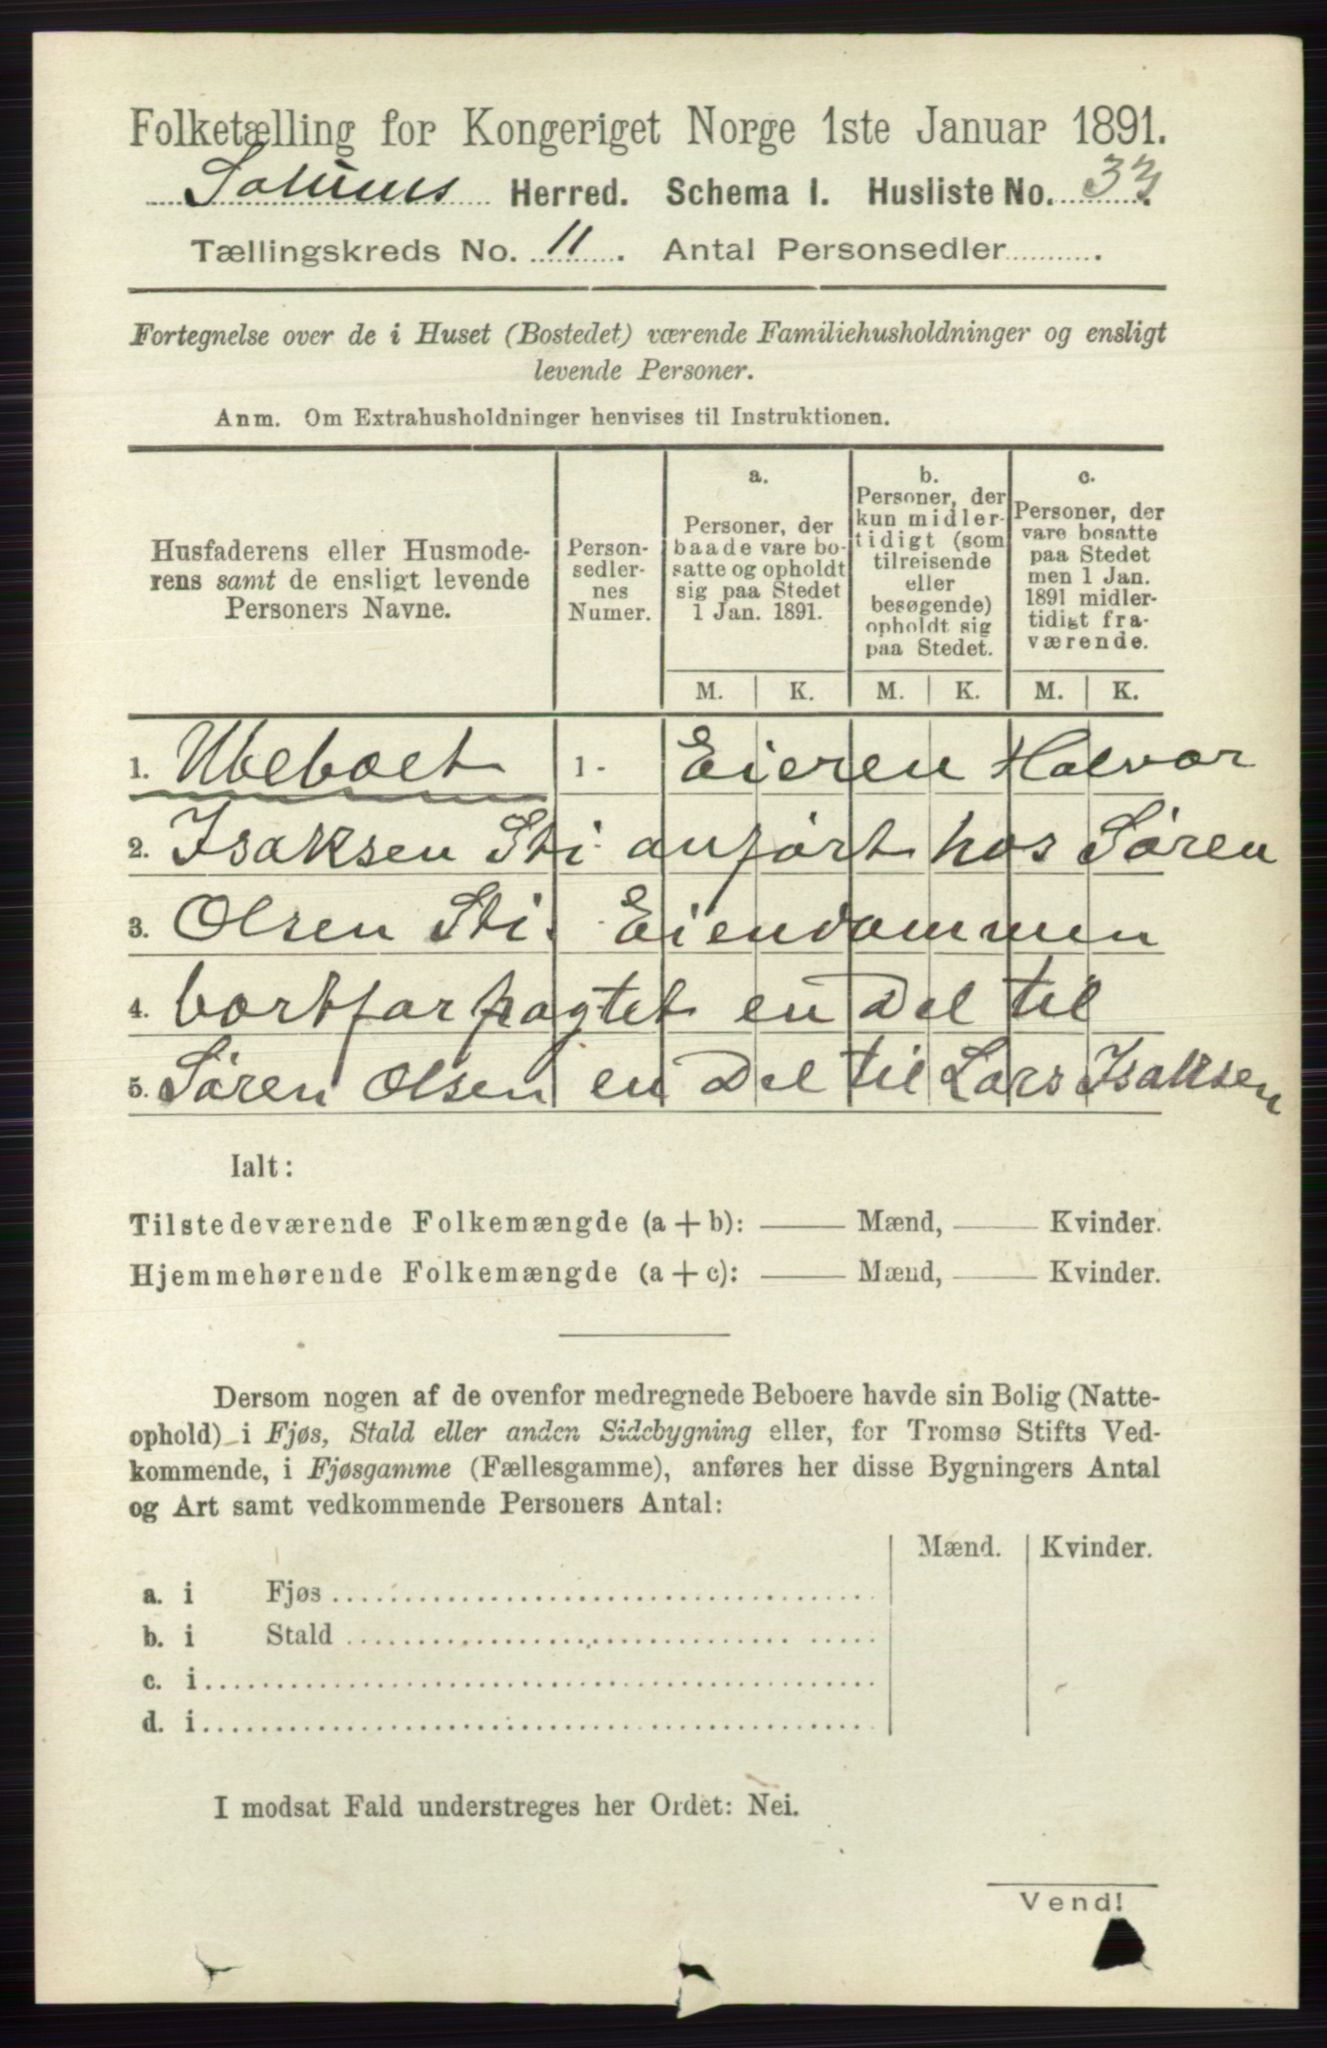 Folketælling for Kongeriget Norge 1ste Januar 1891.
Solums Herred. Schema I. Husliste No. 33.
Tællingskreds No. 11. Antal Personsedler ........
Fortegnelse over de i Huset (Bostedet) værende Familiehusholdninger og ensligt
levende Personer.
Anm. Om Extrahusholdninger henvises til Instruktionen.
Husfaderens eller Husmode-
rens samt de ensligt levende
Personers Navne.
Person-
sedler-
nes
Numer.
a.
Personer, der
baade vare bo-
satte og opholdt
sig paa Stedet
1 Jan. 1891.
b.
Personer, der
kun midler-
tidigt (som
tilreisende
eller
besøgende)
opholdt sig
paa Stedet.
c.
Personer, der
vare bosatte
paa Stedet
men 1 Jan.
1891 midler-
tidigt fra-
værende.
M. K. M. K. M. K.
1. Ubeboet 1 - Eieren Halvor
2. Isaksen Sti anført hos Søren
3. Olsen Sti. Eiendommen
4. bortforpagtet en Del til
5. Søren Olsen en Del til Lars Isaksen
Ialt:
Tilstedeværende Folkemængde (a + b): —— Mænd, —— Kvinder.
Hjemmehørende Folkemængde (a + c): —— Mænd, —— Kvinder.
Dersom nogen af de ovenfor medregnede Beboere havde sin Bolig (Natte-
ophold) i Fjøs, Stald eller anden Sidebygning eller, for Tromsø Stifts Ved-
kommende, i Fjøsgamme (Fællesgamme), anføres her disse Bygningers Antal
og Art samt vedkommende Personers Antal:
Mænd. Kvinder.
a. i Fjøs ........
b. i Stald ........
c. i ........
d. i ........
I modsat Fald understreges her Ordet: Nei.
Vend!